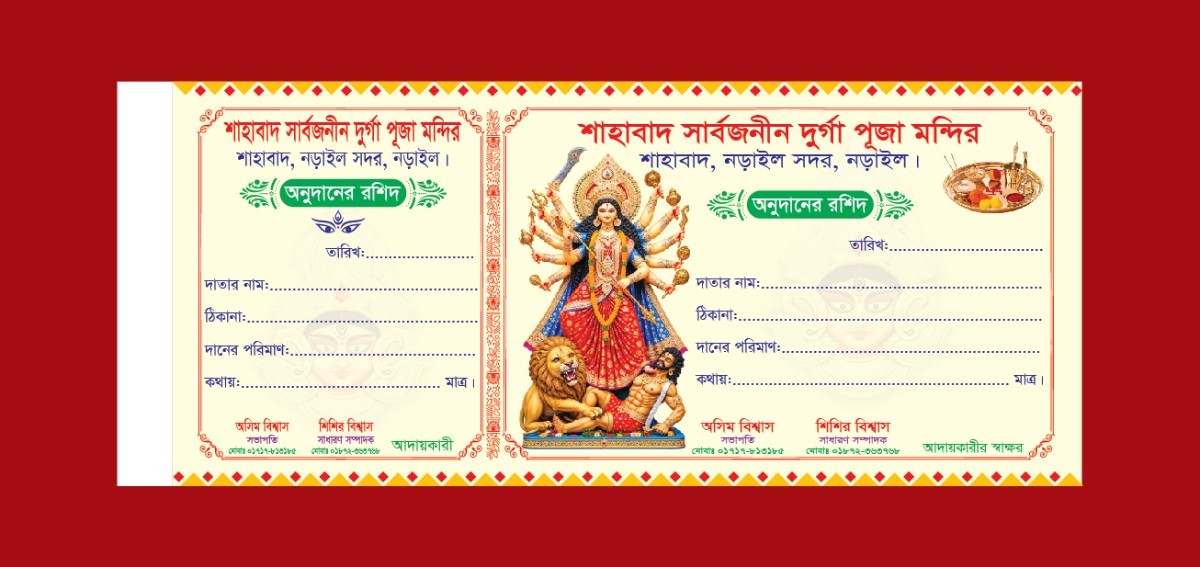 শাহাবাদ সার্বজনীন দুর্গা পূজা মন্দির
শাহাবাদ, নড়াইল সদর, নড়াইল।
অনুদানের রশিদ
তারিখ:
দাতার নাম:
ঠিকানা:
দানের পরিমাণ:
কথায়: মাত্র।
অসিম বিশ্বাস
সভাপতি
মোবাঃ ০১৭১৭-৮১৩১৮৫
শিশির বিশ্বাস
সাধারণ সম্পাদক
মোবাঃ ০১৮৭২-৩৬৩৭৬৮
আদায়কারী
শাহাবাদ সার্বজনীন দুর্গা পূজা মন্দির
শাহাবাদ, নড়াইল সদর, নড়াইল।
অনুদানের রশিদ
তারিখ:
দাতার নাম:
ঠিকানা:
দানের পরিমাণ:
কথায়: মাত্র।
অসিম বিশ্বাস
সভাপতি
মোবাঃ ০১৭১৭-৮১৩১৮৫
শিশির বিশ্বাস
সাধারণ সম্পাদক
মোবাঃ ০১৮৭২-৩৬৩৭৬৮
আদায়কারীর স্বাক্ষর